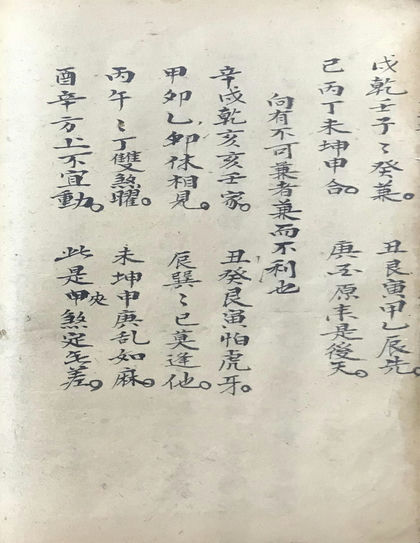 戌乾壬子〻癸兼。丑艮寅甲乙辰先。
巳丙丁未坤申合。庚酉原来是後天。
向有不可兼者兼而不利也
辛戌乾亥亥壬家。丑癸艮寅怕虎牙。
甲卯乙卯休相見。辰巽〻巳莫逢他。
丙午〻丁雙煞曜。未坤申庚乱如麻。
酉辛方上不宜動。此是甲央煞定无差。